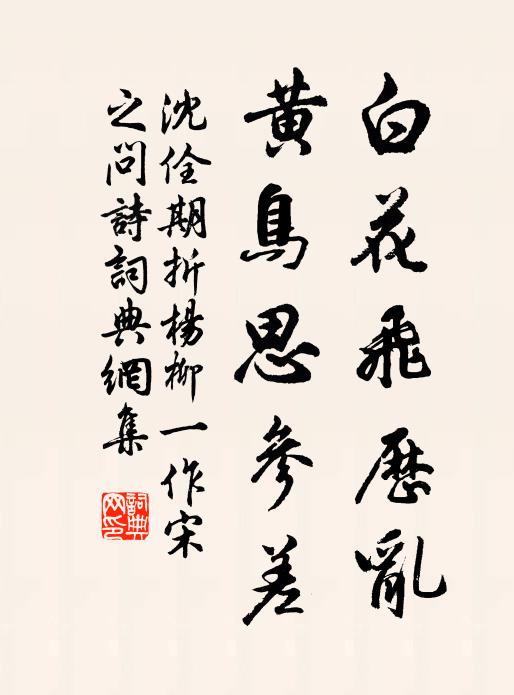 白花飛歷亂
黃鳥思參差
沈佺期折楊柳一作宋
之問詩詞典網集
詞典
网印